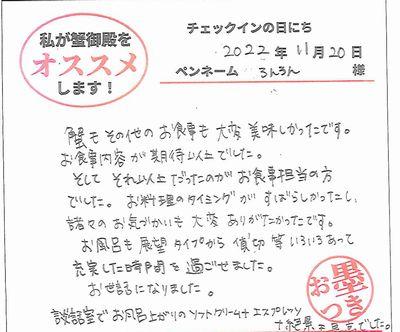 私が蟹御殿を
オススメ
します！
チェックインの日にち
2022年11月20日
ペンネーム るんるん 様
蟹もその他のお食事も大変美味しかったです。
お食事内容が期待以上でした。
そしてそれ以上だったのがお食事担当の方
でした。お料理のタイミングがすばらしかったし、
諸々のお気づかいも大変ありがたかったです。
お風呂も展望タイプから貸切等いろいろあって
充実した時間を過ごせました。
お世話になりました。
談話室でお風呂上がりのソフトクリーム+エスプレッソ
絶景が最高でした。
お墨
つき